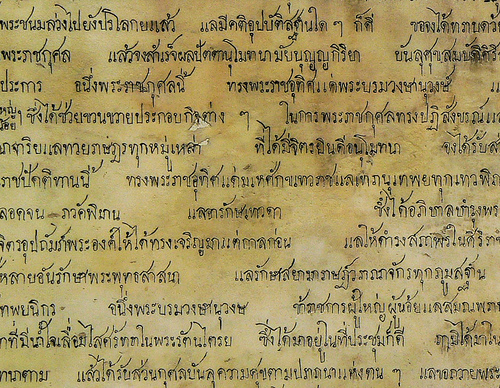 พระชนมล่วงไปยังปรโลกยแล้ว แลมีคติอุปบัติสฐานใด ๆ ก็ดี ขอจงได้ทราบด้วย
พระราชกุศล แล้วจงสำเร็จผลปัตตานุโมทนามัยบุญญกิริยา
ประการ อนึ่งพระราชกุศลนี้ ทรงพระราชอุทิศแด่พระบรมวงษานุวงษ
ๆ ซึ่งได้ช่วยขวนขวายประกอบกิจต่าง ๆ ในการพระราชกุศลทรงปฏิสังขรณ์
แลทวยราษฎรทุกหมู่เหล่า ที่ได้มีจิตรยินดีอนุโมทนา จงได้รับส่วน
ปัตติทานนี้ ทรงพระราชอุทิศแด่มเหศักขเทวราชแลเทพยุเทพยทุกเทวพิภพ
ตลอดจน ภวัคพิมาน แลอารักษเทวดา ซึ่งได้อภิบาลบำรุงพระ
จิตรอุปถัมภ์พระองค์ให้ได้ทรงเจริญมาแต่กาลก่อน แลให้ดำรงสภาพรในสิริราช
หลายอันรักษาพระพุทธสาสนา แลรักษสยามราษฎรัฐอาณาจักรทุกภูมสฐาน
เทพยนิกร อนึ่งพระบรมวงษานุวงษ ข้าราชการผู้ใหญ่ผู้น้อยแลสมณพราหม
ที่มีน้ำใจเลื่อมใสศรัทธาในพระรัตนไตรย ซึ่งได้มาอยู่ในที่ประชุมก็ดี มิได้มาใน
แล้วได้รับส่วนกุศลบันลุความศุขตามปรารถนาแห่งตน ๆ แลขอถวายพระ